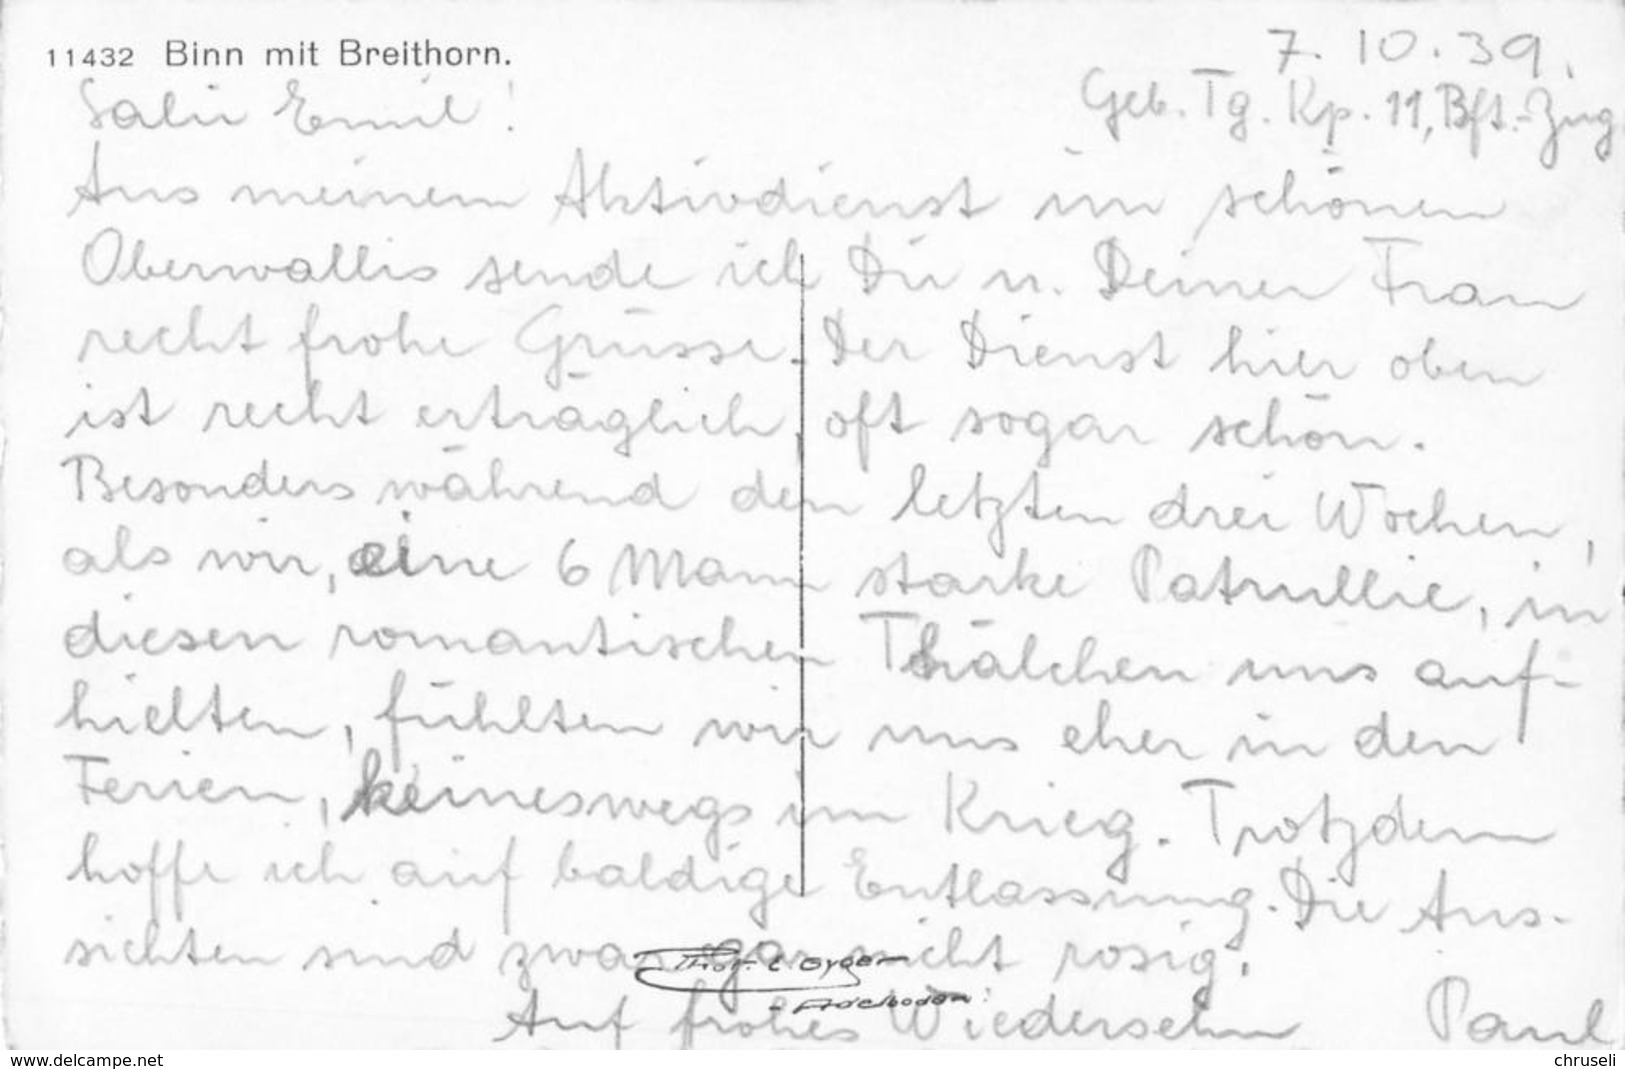 11432 Binn mit Breithorn.
7.10.39.
Geb. Tg. Kp. 11, Bft.-Zug
Salü Emil!
Aus meinem Aktivdienst im schönen
Oberwallis sende ich Dir u. Deiner Frau
recht frohe Grüsse. Der Dienst hier oben
ist recht erträglich, oft sogar schön.
Besonders während den letzten drei Wochen,
als wir, eine 6 Mann starke Patrullie, in
diesen romantischen Thälchen uns auf-
hielten, fühlten wir uns eher in den
Ferien, keineswegs im Krieg. Trotzdem
hoffe ich auf baldige Entlassung. Die Aus-
sichten sind zwar gar nicht rosig.
Phot. E. Gyger
Adelboden
Auf frohes Wiedersehn Paul
www.delcampe.net
chruseli